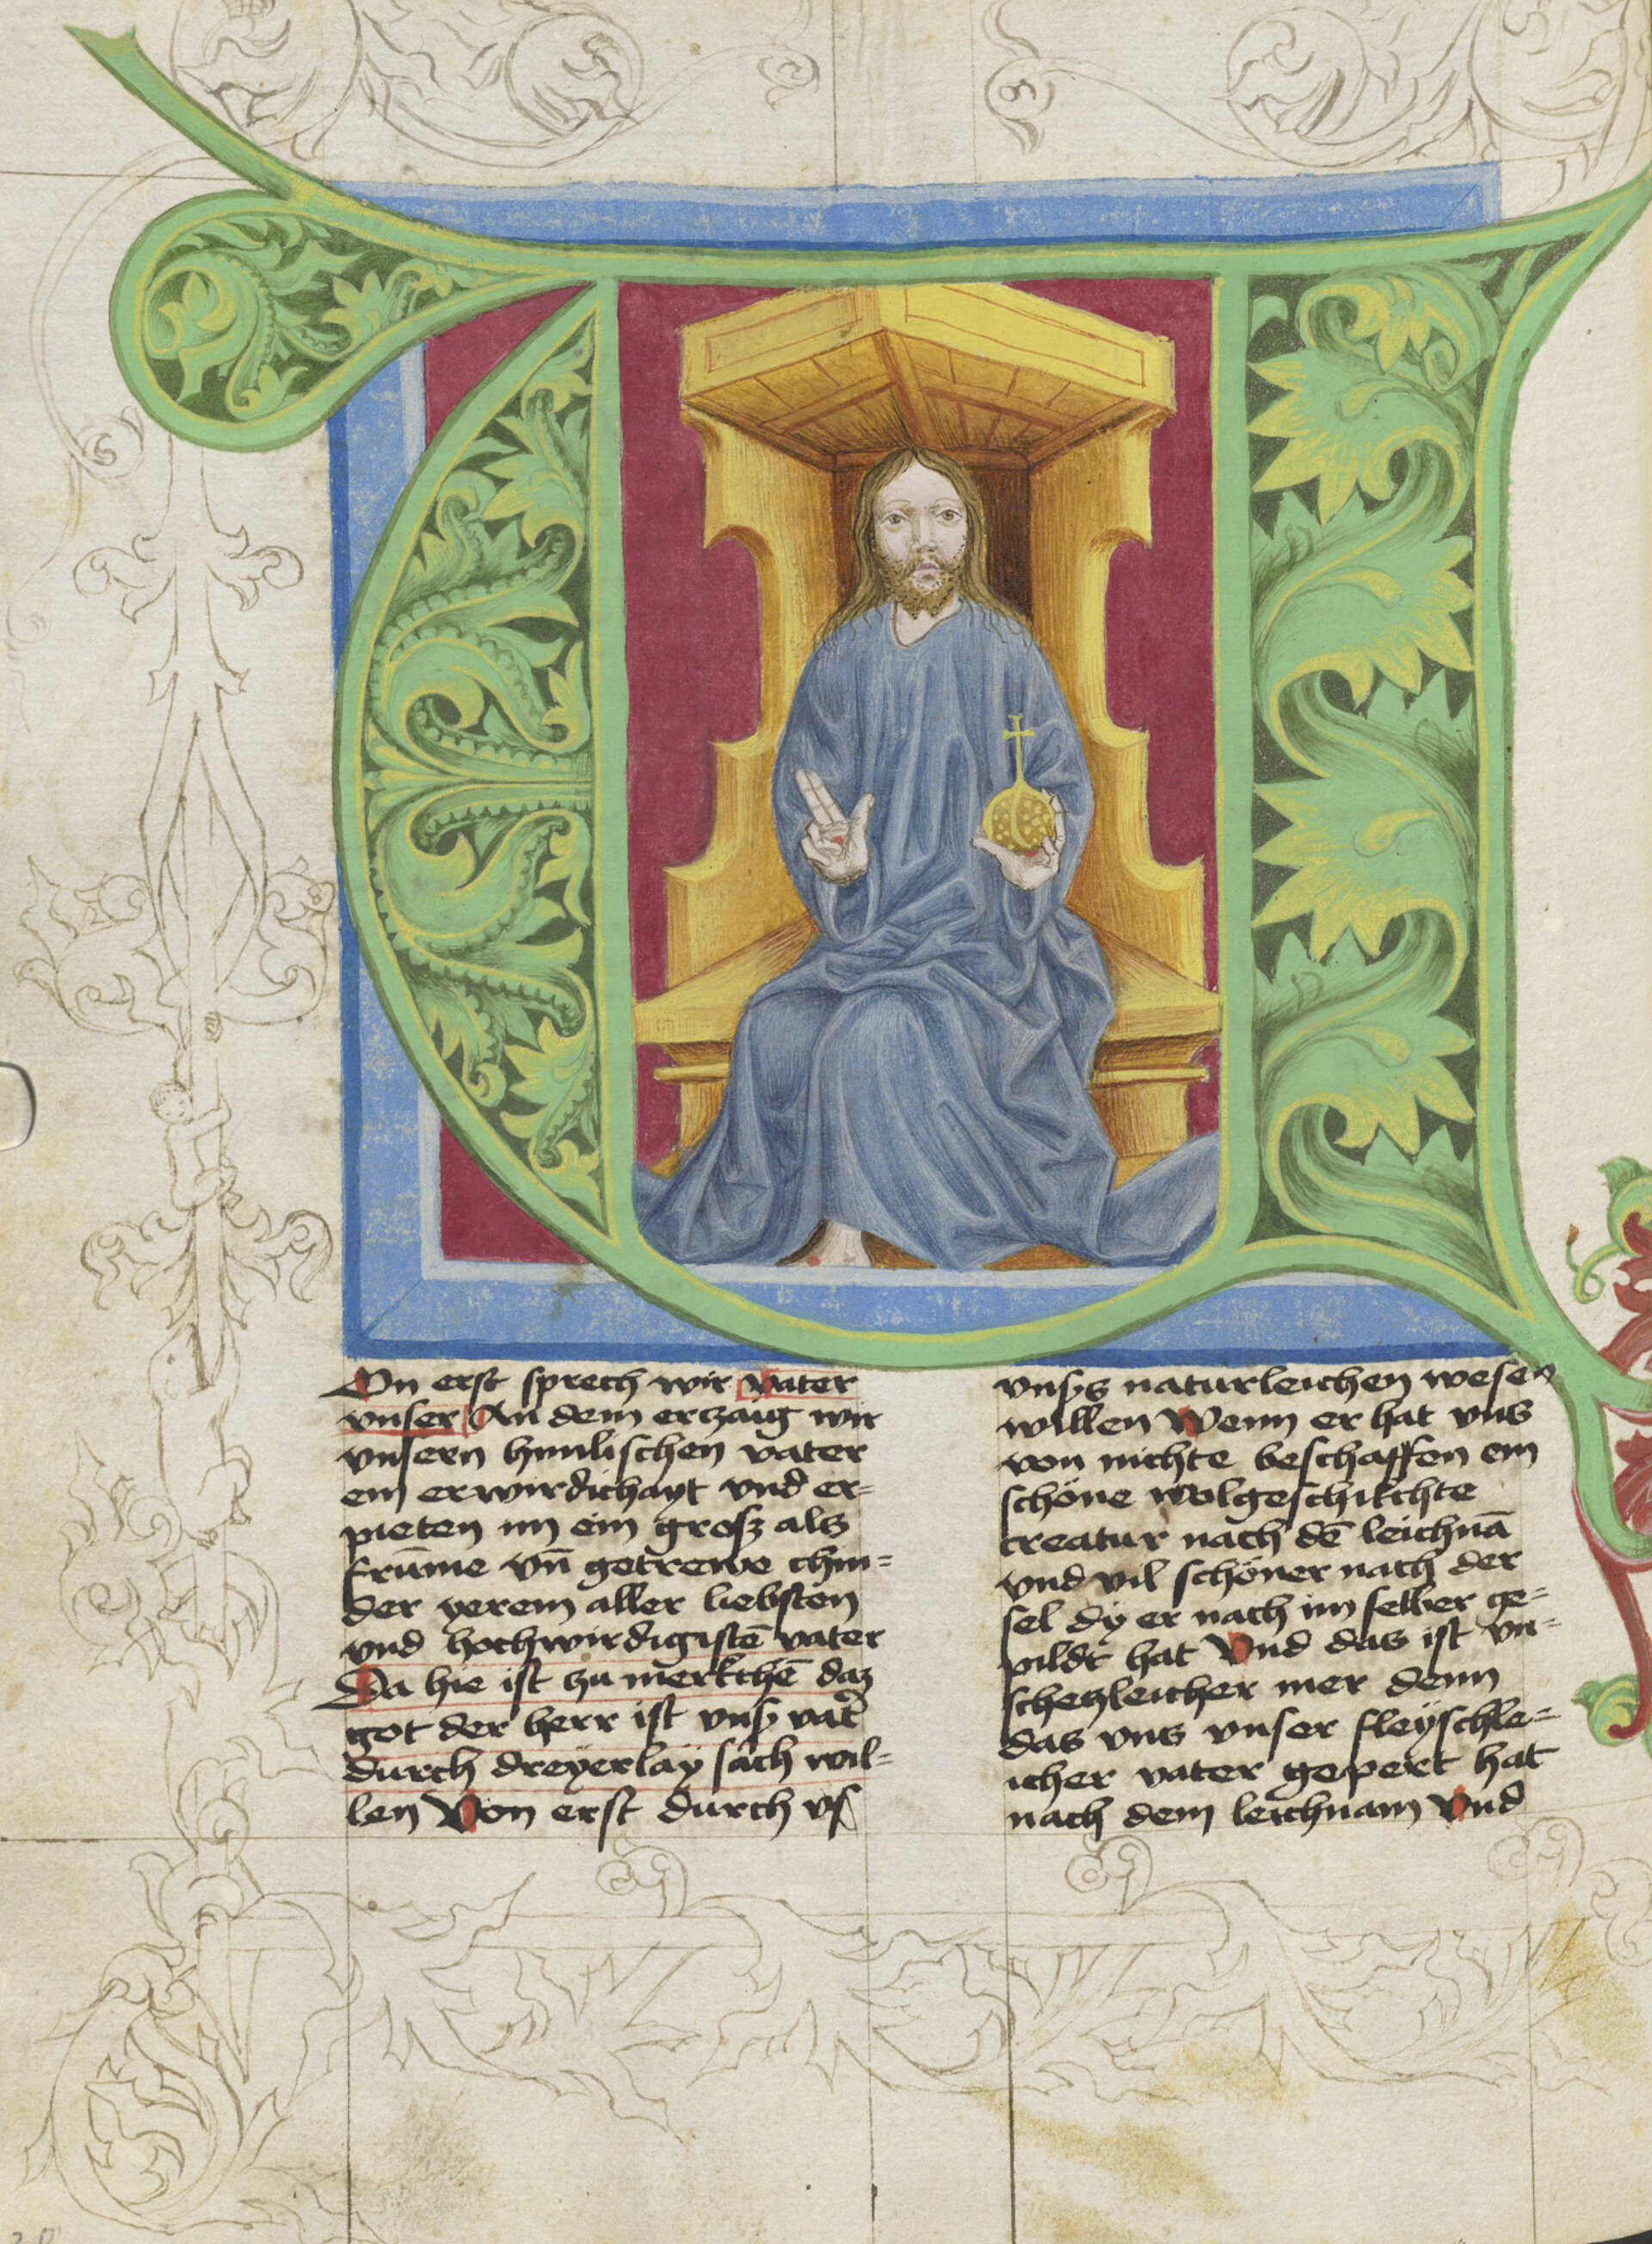 On erst sprech wir vater
vnser An dem erzaig wir
vnsern himlischen vater
ein erwirdichayt vnd er=
pieten im ein grosz als
frūme vn̄ getrewe chin=
der yerem aller liebsten
vnd hochwirdigistē vater
Da hie ist zu merkchē daz
got der herr ist vnsʒ vat̓
durch dreyerlay sach wil=
len Von erst durch vſ
vnsʒs naturleichen wesen
willen Wenn er hat vns
von nichte beschaffen ein
schöne wolgeschikchte
creatur nach dē leichnā
vnd vil schöner nach der
sel dÿ er nach im selber ge=
pildt hat Vnd das ist vn=
scheczleicher mer denn
das vns vnser fleÿschle=
icher vater gepert hat
nach dem leichnam Vnd